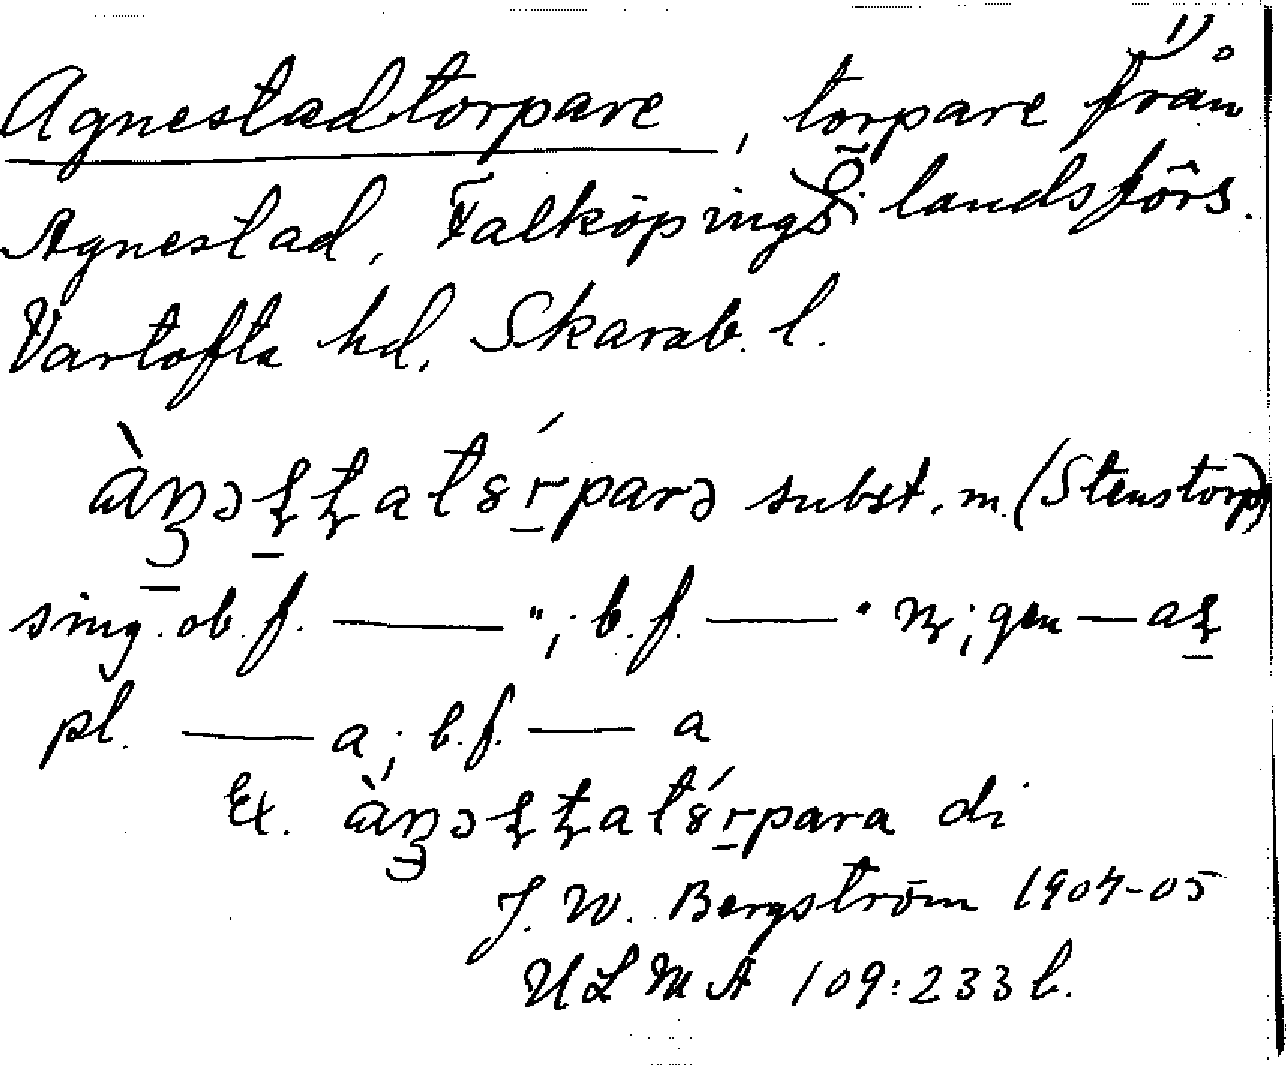 1)
Agnestadtorpare, torpare från
Agnestad, Falköpings Ö landsförs.
Vartofta hd, Skarab. l.
subst. m. (Stenstorp)
sing. ob. f. —— "; b. f. —— " ; gen —
pl. —— a; b. f. —— a
Ex. di
J. W. Bergström 1904-05
ULMA 109:233 b.